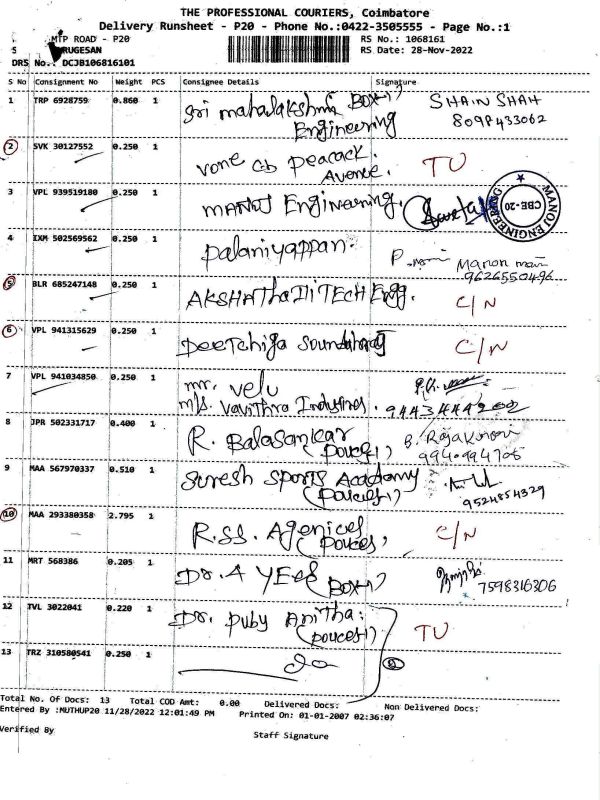 THE PROFESSIONAL COURIERS, Coimbatore
Delivery Runsheet - P20 - Phone No.:0422-3505555 - Page No.:1
MTP ROAD - P20
RS No.: 1068161
RUGESAN
RS Date: 28-Nov-2022
DRS No.: DCJB106816101
S No Consignment No Weight PCS Consignee Details Signature
1 TRP 6928759 0.860 1 Sri mahalakshmi BOX-1 SHAIN SHAH
Engineering 8098433062
2 SVK 30127552 0.250 1 peacock. TU
Avenue.
3 VPL 939519180 0.250 1 MANOJ Engineering. MANOJ ENGINEERING CBE-20
4 IXM 502569562 0.250 1 Palaniyappan.
9626550496
5 BLR 685247148 0.250 1 AKSHATha HiTECH Engg. C/N
6 VPL 941315629 0.250 1 C/N
7 VPL 941034850 0.250 1 mr. velu
m/s. Vavithra Industries. 9443444202
8 JPR 502331717 0.400 1 R. Balasankar
9 MAA 567970337 0.510 1 Suresh Sports Academy
9524854329
10 MAA 293380358 2.795 1 R.SS. Agencies C/N
11 MRT 568386 0.205 1 Dr. A
7598316306
12 TVL 3022041 0.220 1 Dr. Puby Anitha: TU
13 TRZ 310580541 0.250 1
Total No. Of Docs: 13 Total COD Amt: 0.00 Delivered Docs: Non Delivered Docs:
Entered By :MUTHUP20 11/28/2022 12:01:49 PM Printed On: 01-01-2007 02:36:07
Verified By
Staff Signature